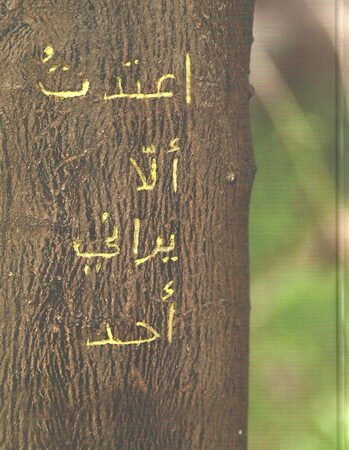 اعتدتُ
ألّا
يراني
أحد